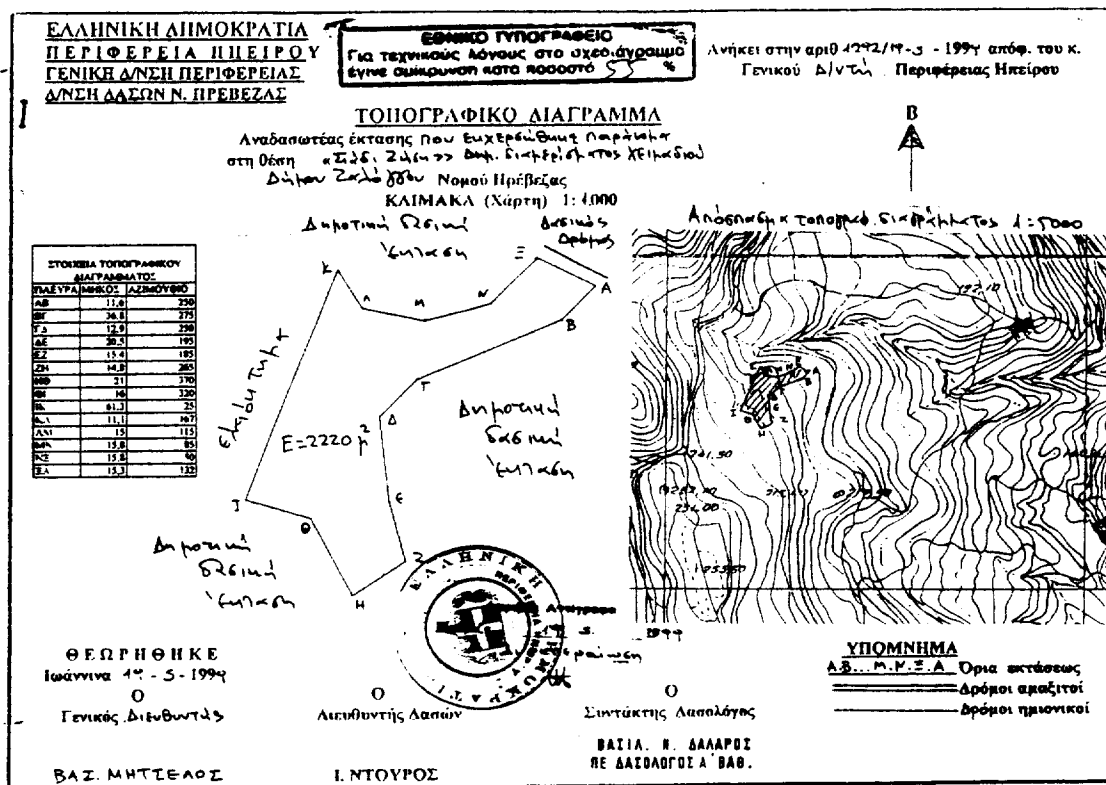 ΕΛΛΗΝΙΚΗ ΔΗΜΟΚΡΑΤΙΑ
ΠΕΡΙΦΕΡΕΙΑ ΗΠΕΙΡΟΥ
ΓΕΝΙΚΗ Δ/ΝΣΗ ΠΕΡΙΦΕΡΕΙΑΣ
Δ/ΝΣΗ ΔΑΣΩΝ Ν. ΠΡΕΒΕΖΑΣ
ΕΘΝΙΚΟ ΤΥΠΟΓΡΑΦΕΙΟ
Για τεχνικούς λόγους στο σχεδιάγραμμα
έγινε σμίκρυνση κατά ποσοστό 53 %
Ανήκει στην αριθ 1292/19-5-1999 απόφ. του κ.
Γενικού Δ/ντή Περιφέρειας Ηπείρου
ΤΟΠΟΓΡΑΦΙΚΟ ΔΙΑΓΡΑΜΜΑ
Αναδασωτέας έκτασης που εκχερσώθηκε παράνομα
στη θέση «Σιάδι Ζώση» Δημ. διαμερίσματος Χειμαδιού
Δήμου Ζαλόγγου Νομού Πρέβεζας
ΚΛΙΜΑΚΑ (Χάρτη) 1: 1.000
Β
Δημοτική δασική
έκταση
Δασικός
Δρόμος
Απόσπασμα τοπογραφ. διαγράμματος 1:5000
ΣΤΟΙΧΕΙΑ ΤΟΠΟΓΡΑΦΙΚΟΥ
ΔΙΑΓΡΑΜΜΑΤΟΣ
ΠΛΕΥΡΑ ΜΗΚΟΣ ΑΖΙΜΟΥΘΙΟ
ΑΒ 11,6 250
ΒΓ 36,8 275
ΓΔ 12,9 250
ΔΕ 20,5 195
ΕΖ 15,4 185
ΖΗ 14,8 265
ΗΘ 21 370
ΘΙ 16 320
ΙΚ 61,3 25
ΚΛ 11,1 167
ΛΜ 15 115
ΜΝ 15,8 85
ΝΞ 15,8 50
ΞΑ 15,3 132
Κ
Λ
Μ
Ν
Ξ
Α
Β
Γ
Δ
Ε
Ζ
Η
Θ
Ι
Ελαιόκτημα
Ε=2220 μ²
Δημοτική
δασική
έκταση
Δημοτική
δασική
έκταση
192.10
241.50
234.00
253.50
ΕΛΛΗΝΙΚΗ ΔΗΜΟΚΡΑΤΙΑ
ΘΕΩΡΗΘΗΚΕ
Ιωάννινα 19-5-1999
Ο
Γενικός Διευθυντής
ΒΑΣ. ΜΗΤΣΕΛΟΣ
Ο
Διευθυντής Δασών
Ι. ΝΤΟΥΡΟΣ
Ο
Συντάκτης Δασολόγος
ΒΑΣΙΛ. Ν. ΔΑΛΑΡΟΣ
ΠΕ ΔΑΣΟΛΟΓΟΣ Α΄ ΒΑΘ.
ΥΠΟΜΝΗΜΑ
Α.Β... Μ.Ν.Ξ.Α Όρια εκτάσεως
Δρόμοι αμαξιτοί
Δρόμοι ημιονικοί